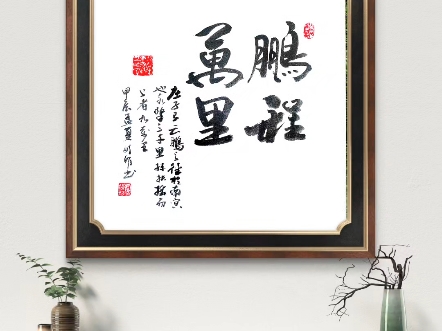 鵬程
萬里
庄子有云鵬之徙於南冥
也水擊三千里摶扶摇而
上者九萬里
甲辰孟夏